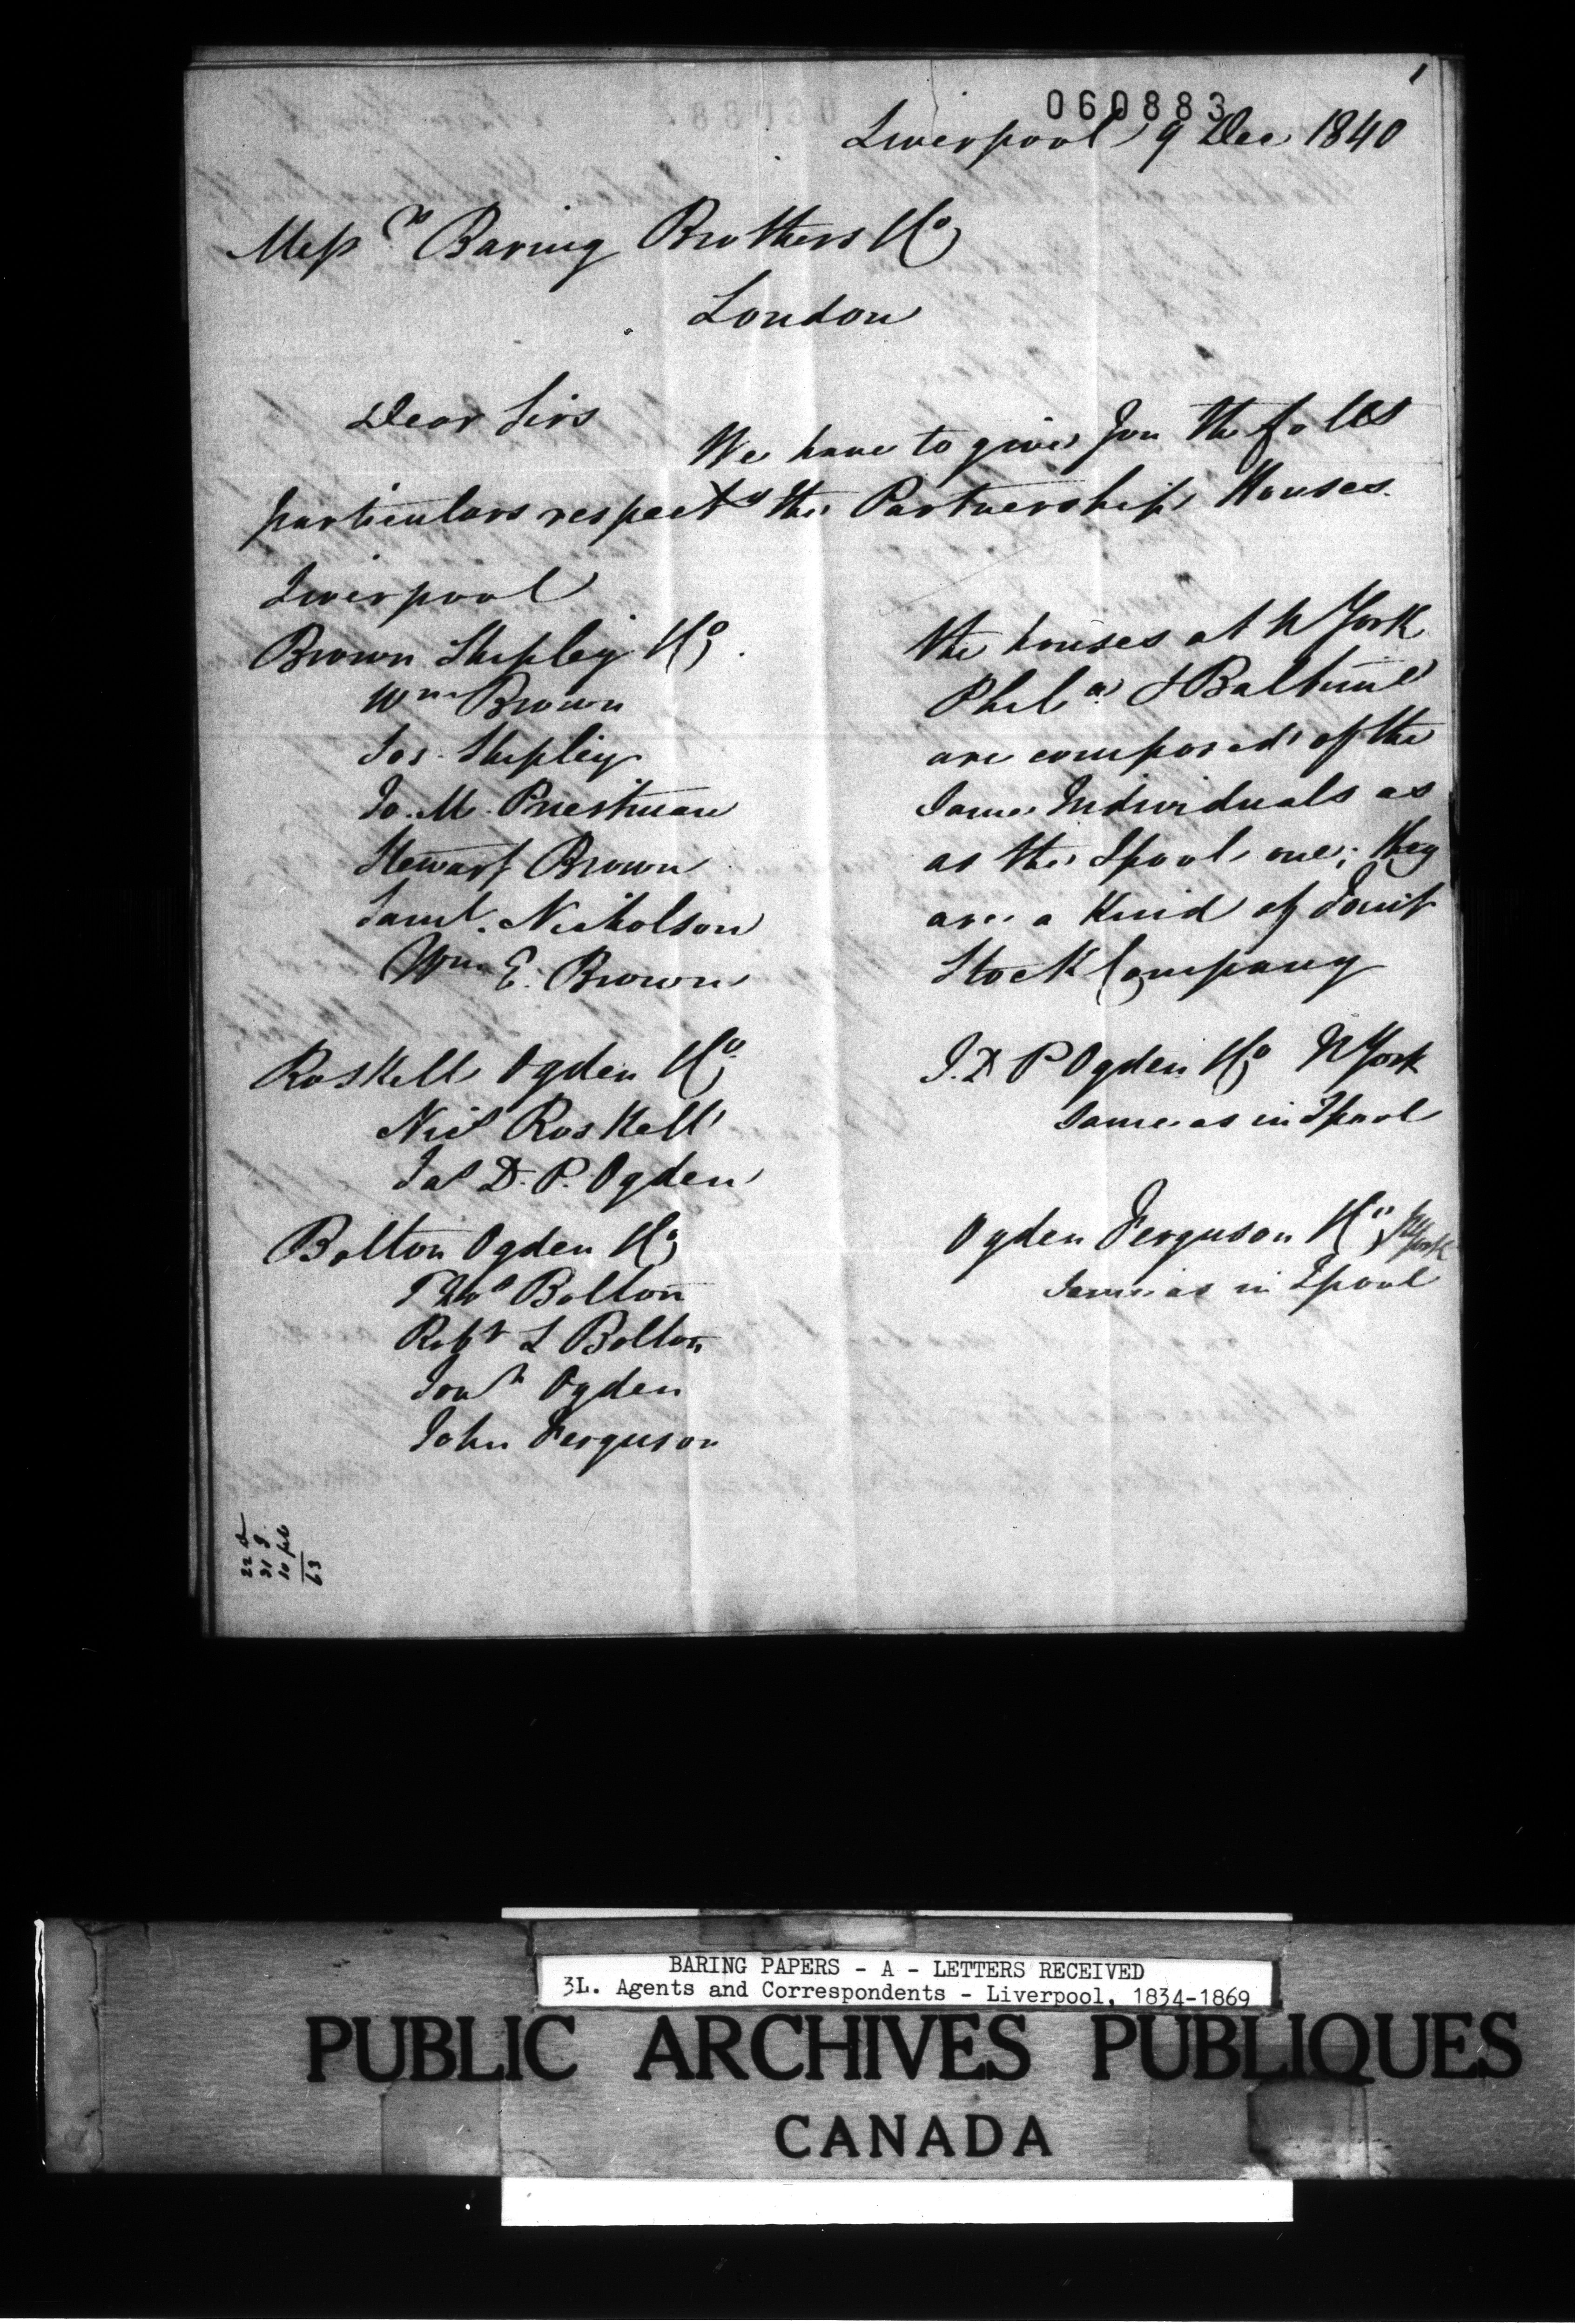 1
060883
Liverpool 9 Dec 1840
Messrs Baring Brothers & Co
London
Dear Sirs
We have to give you the follg
particulars respectg the Partnership Houses.
Liverpool
Brown Shipley & Co.
Wm Brown
Jos. Shipley
Jo. M. Priestman
Stewart Brown
Saml. Nicholson
Wm E. Brown
the houses at N York
Phila & Baltimre
are composed of the
same Individuals as
as the Lpool one; they
are a Kind of Joint
Stock Company
Roskell Ogden & Co
Nis Roskell
Jas D. P. Ogden
J. D P Ogden & Co N York
Same as in Lpool
Bolton Ogden & Co
Thos Bolton
Robt L Bolton
Jonn Ogden
John Ferguson
Ogden Ferguson & Co, N York
Same as in Lpool
22
31
10
63
BARING PAPERS - A - LETTERS RECEIVED
3L. Agents and Correspondents - Liverpool, 1834-1869
PUBLIC ARCHIVES PUBLIQUES
CANADA